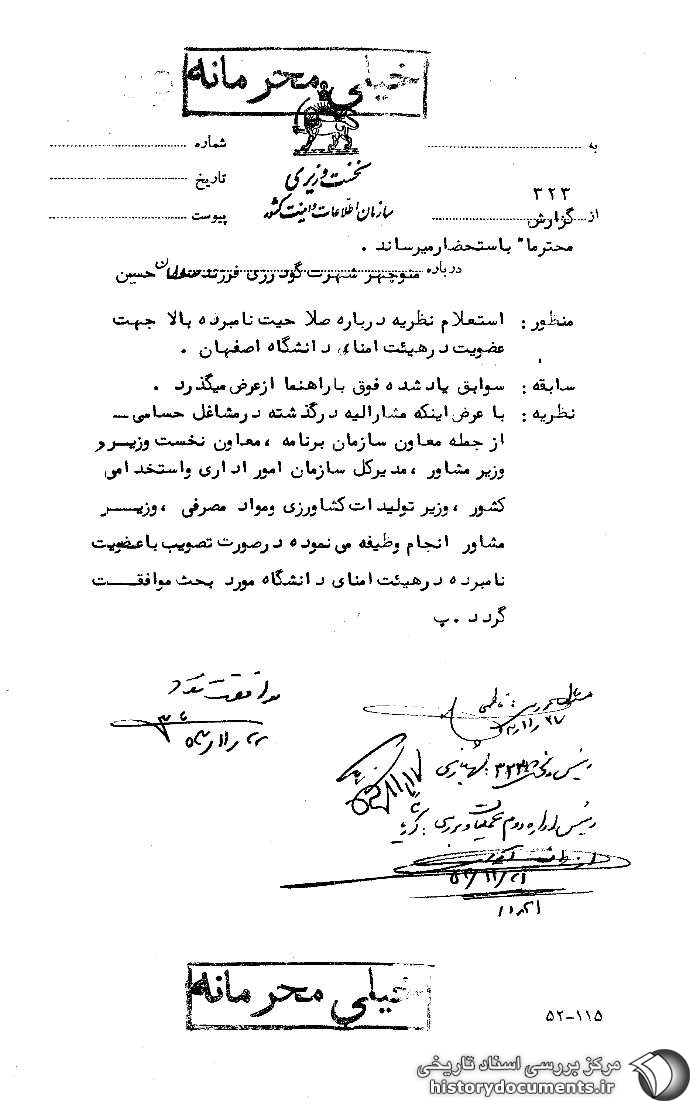 خیلی محرمانه
به
شماره
نخست وزیری
تاریخ
۳۲۳
سازمان اطلاعات و امنیت کشور
از
گزارش
پیوست
محترما" باستحضار میرساند .
درباره منوچهر شهرت گودرزی فرزند حسین
منظور : استعلام نظریه درباره صلاحیت نامبرده بالا جهت
عضویت در هیئت امنای دانشگاه اصفهان .
سابقه : سوابق یاد شده فوق باراهنما ازعرض میگذرد .
نظریه : با عرض اینکه مشارالیه درگذشته درمشاغل حسامی
از جمله معاون سازمان برنامه ، معاون نخست وزیر و
وزیر مشاور ، مدیرکل سازمان امور اداری واستخدامی
کشور ، وزیر تولیدات کشاورزی ومواد مصرفی ، وزیر
مشاور انجام وظیفه می نموده درصورت تصویب باعضویت
نامبرده درهیئت امنای دانشگاه مورد بحث موافقت
گردد . پ
رئیس اداره دوم عملیات و بررسی :
خیلی محرمانه
۵۲-۱۱۵
مرکز بررسی اسناد تاریخی
historydocuments.ir